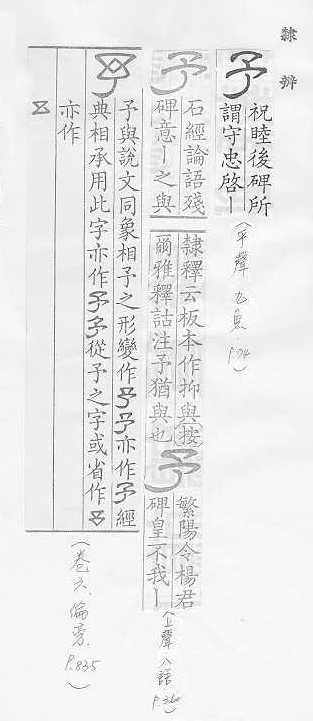 隸辨
予
祝睦後碑所
謂守忠啓丨
(平聲 九魚 P.74)
予
石經論語殘
碑意丨之與
隸釋云板本作抑與按
爾雅釋詁注予猶與也
予
繁陽令楊君
碑皇不我丨
(上聲 八語 P.360)
予與說文同象相予之形變作予予亦作予經
典相承用此字亦作予予從予之字或省作
亦作
(卷六、偏旁、P.835)